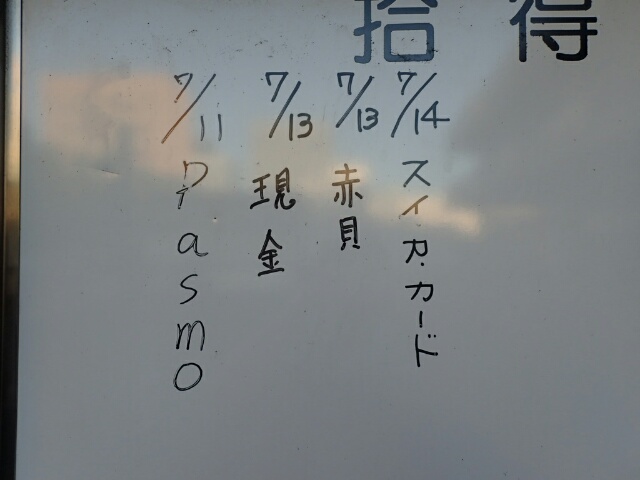 拾得
7/14 スイカ・カード
7/13 赤貝
7/13 現金
7/11 Pasmo